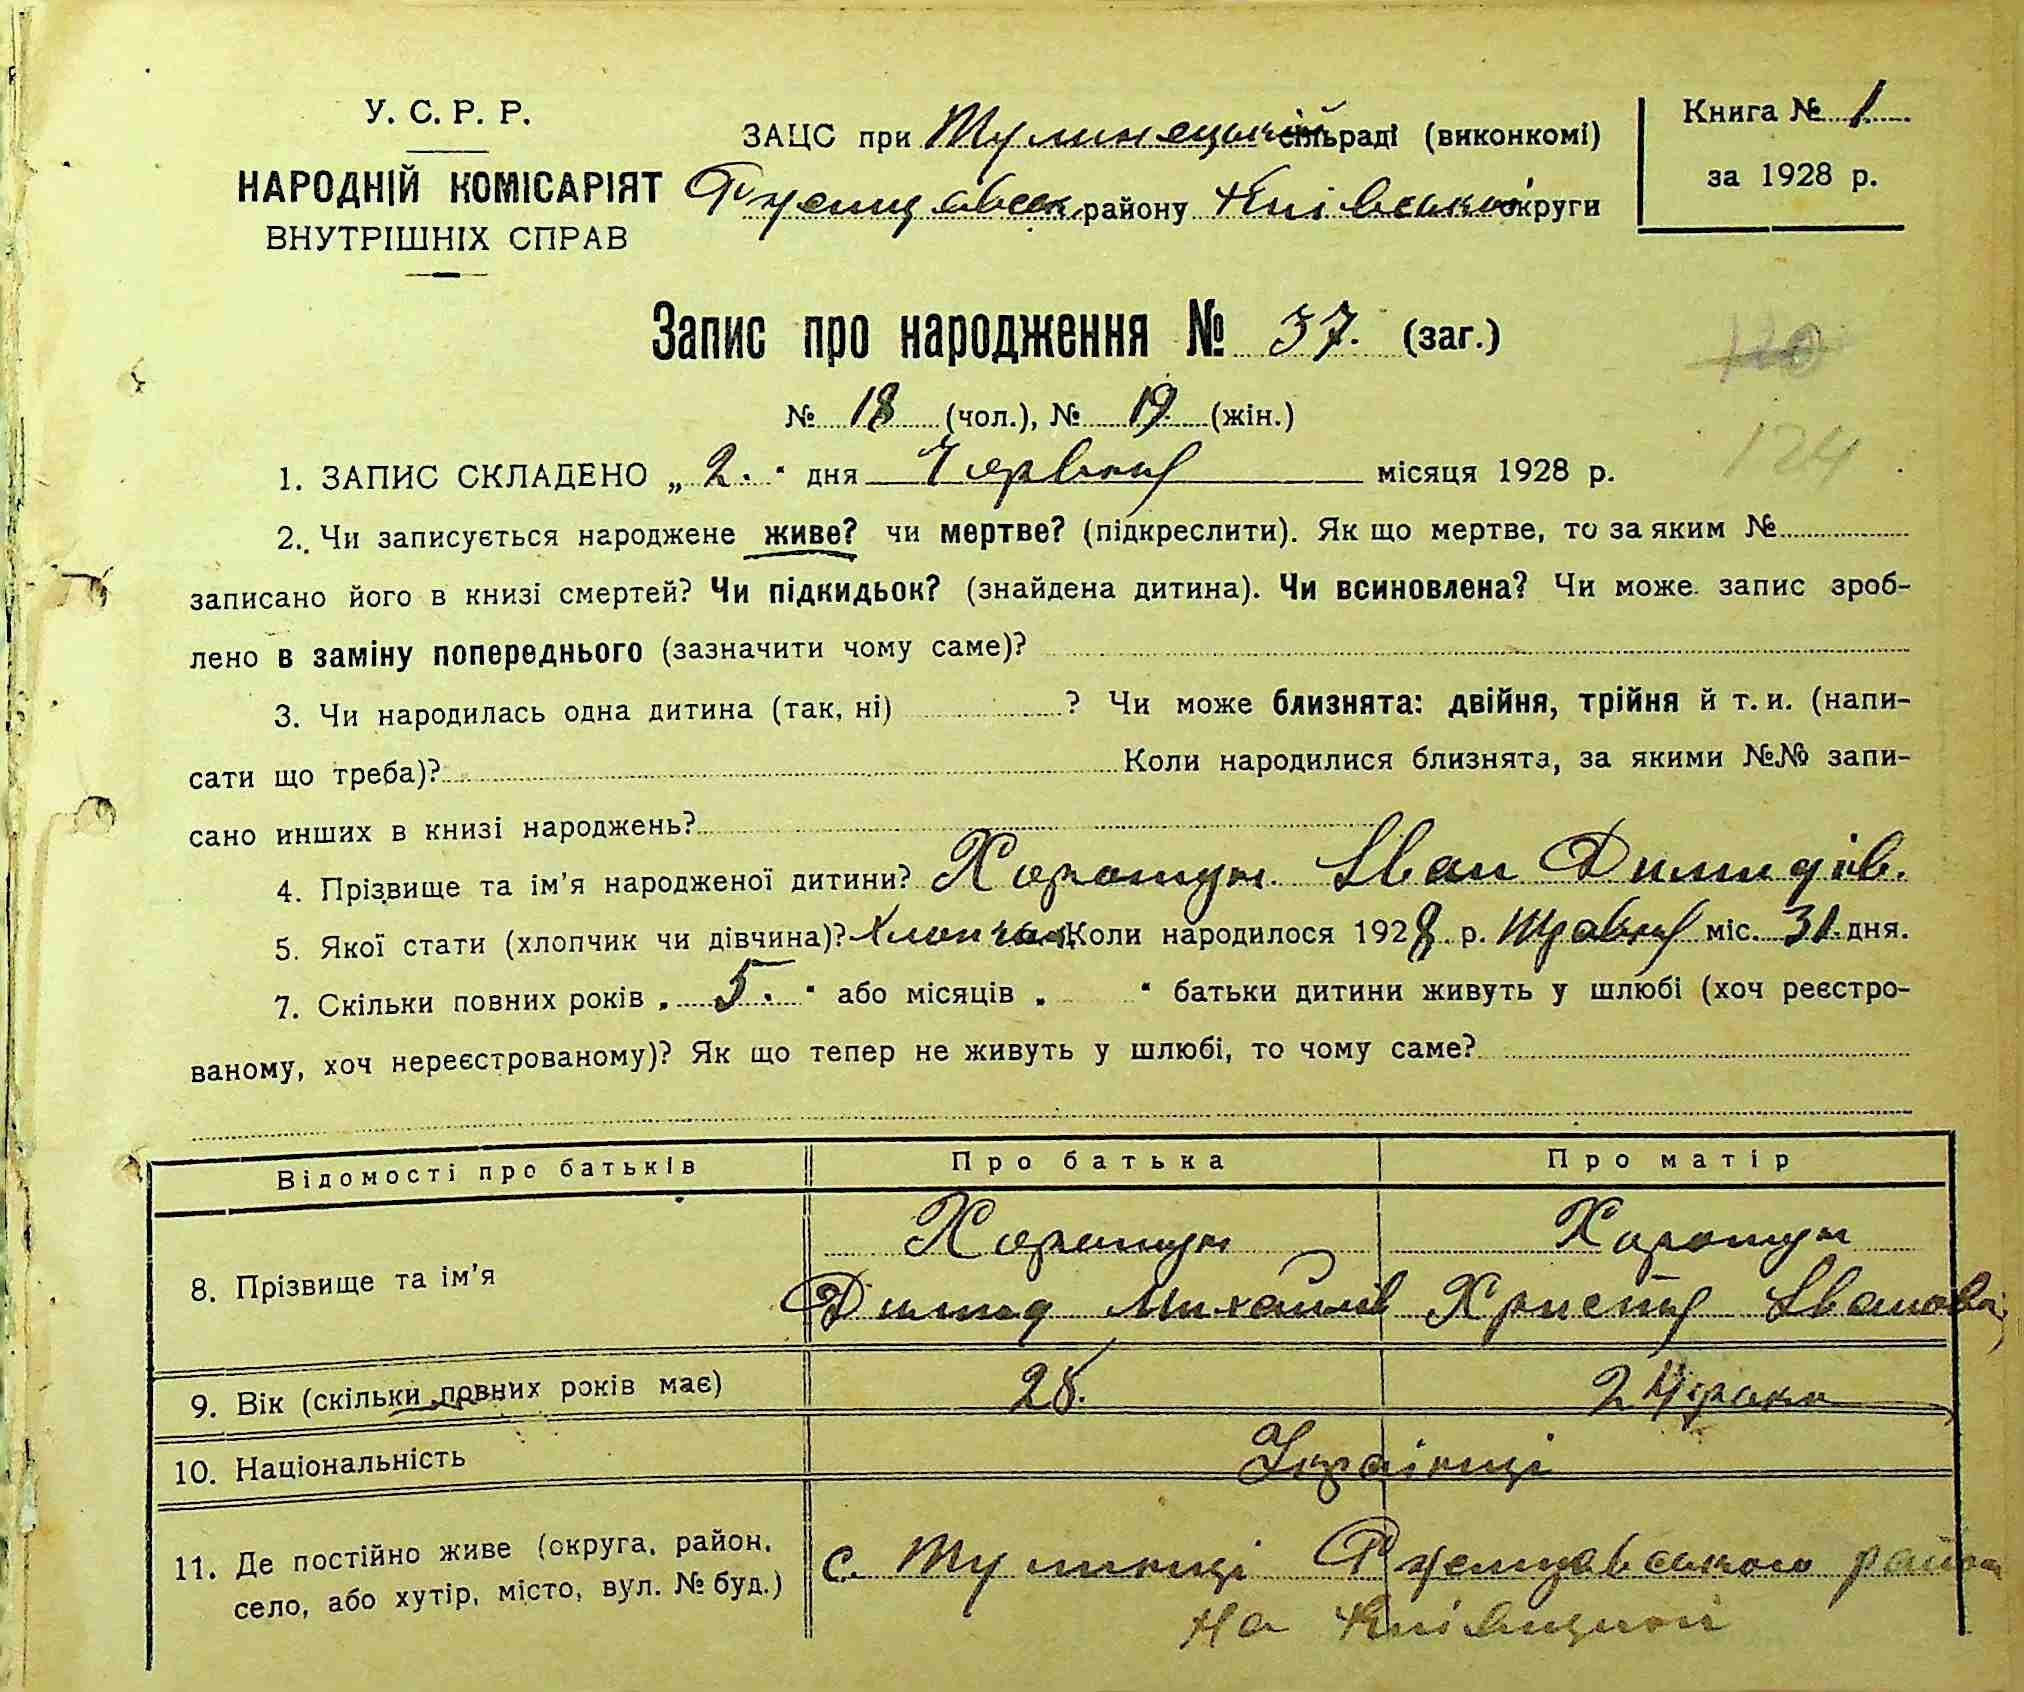 У. С. Р. Р.
НАРОДНІЙ КОМІСАРІЯТ
ВНУТРІШНІХ СПРАВ
ЗАЦС при Тулинецькій сільраді (виконкомі)
району Київської округи
Книга № 1
за 1928 р.
Запис про народження № 37. (заг.)
120
№ 18 (чол.), № 19 (жін.)
124
1. ЗАПИС СКЛАДЕНО „ 2. " дня Червня місяця 1928 р.
2. Чи записується народжене живе? чи мертве? (підкреслити). Як що мертве, то за яким №
записано його в книзі смертей? Чи підкидьок? (знайдена дитина). Чи всиновлена? Чи може запис зроб-
лено в заміну попереднього (зазначити чому саме)?
3. Чи народилась одна дитина (так, ні) ? Чи може близнята: двійня, трійня й т. и. (напи-
сати що треба)? Коли народилися близнята, за якими №№ запи-
сано инших в книзі народжень?
4. Прізвище та ім'я народженої дитини? Хоротун Іван Дилидів.
5. Якої стати (хлопчик чи дівчина)? Хлопчик Коли народилося 1928 р. Травня міс. 31 дня.
7. Скільки повних років „ 5. " або місяців „ " батьки дитини живуть у шлюбі (хоч реєстро-
ваному, хоч нереєстрованому)? Як що тепер не живуть у шлюбі, то чому саме?
Відомості про батьків Про батька Про матір
8. Прізвище та ім'я Хоротун Хоротун
Михайлів Христя Іванова
9. Вік (скільки повних років має) 24 роки
10. Національність Українці
11. Де постійно живе (округа, район, село, або хутір, місто, вул. № буд.) с. Тулинці району
на Київщині